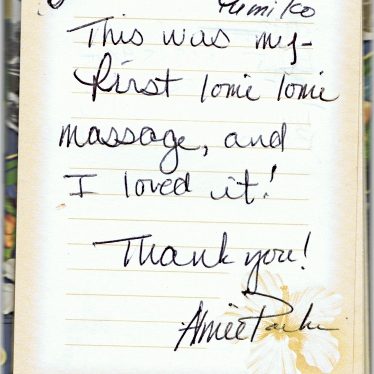 This was my
first lomi lomi
massage, and
I loved it!
Thank you!